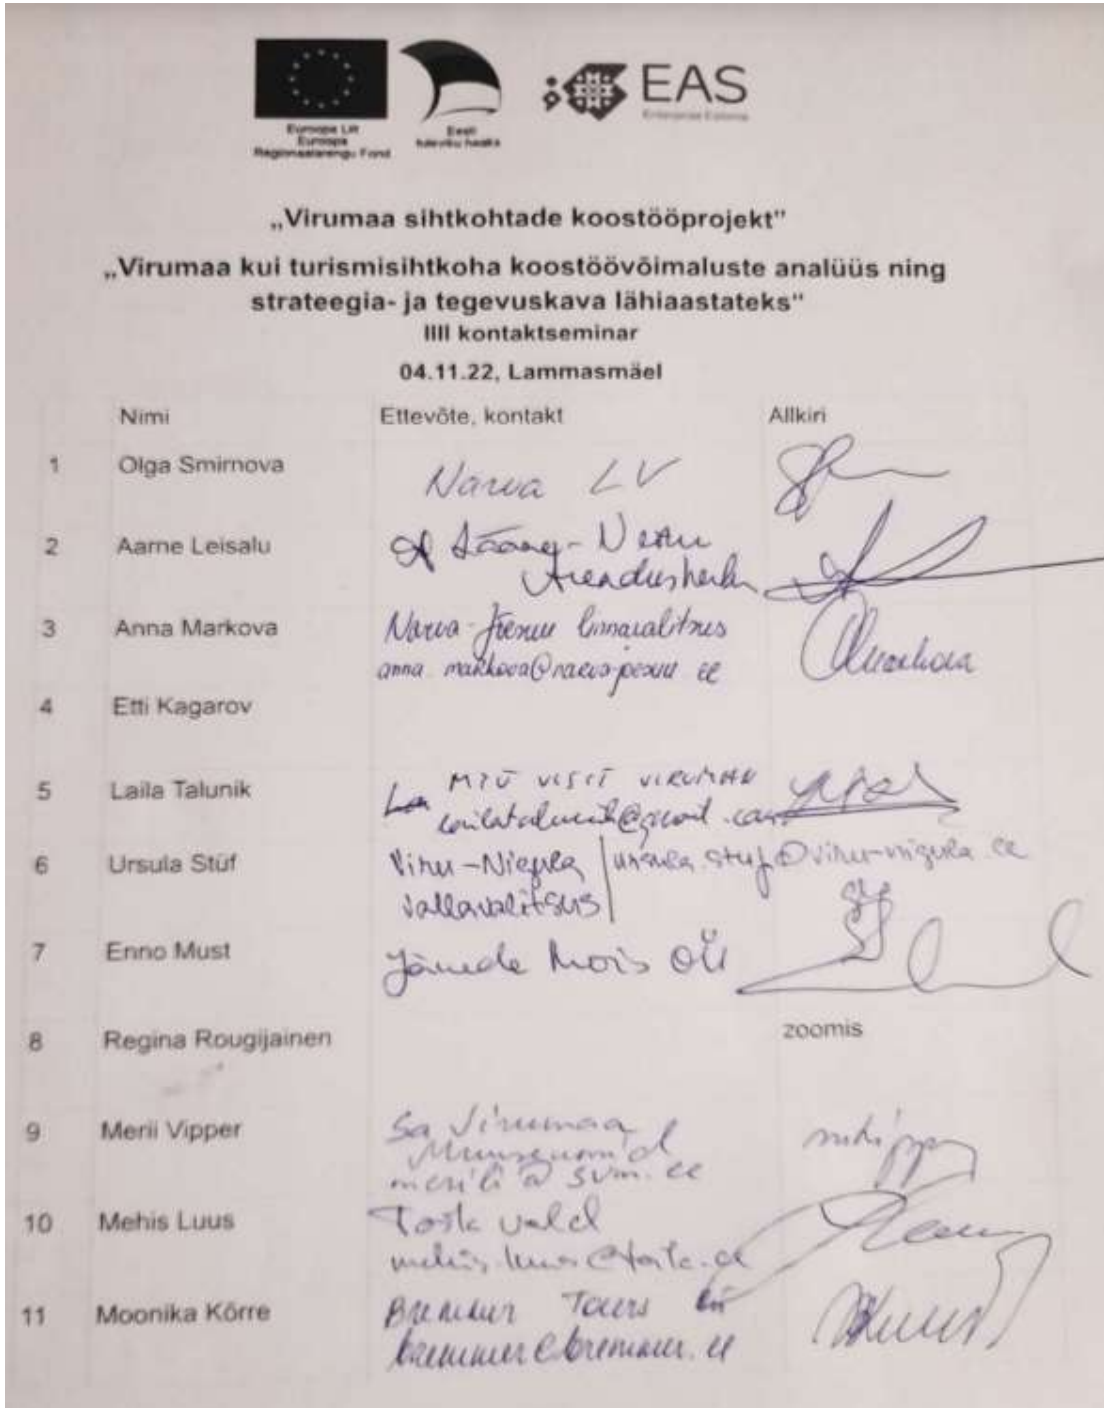 Euroopa Liit
Euroopa
Regionaalarengu Fond
Eesti
tuleviku heaks
EAS
Enterprise Estonia
„Virumaa sihtkohtade koostööprojekt"
„Virumaa kui turismisihtkoha koostöövõimaluste analüüs ning
strateegia- ja tegevuskava lähiaastateks"
IIII kontaktseminar
04.11.22, Lammasmäel
Nimi Ettevõte, kontakt Allkiri
1 Olga Smirnova Narva LV
2 Aarne Leisalu Lääne-Viru
3 Anna Markova Narva-Jõesuu linnavalitsus
4 Etti Kagarov
5 Laila Talunik MTÜ VISIT VIRUMAA
lailatalunik@gmail.com
6 Ursula Stüf Viru-Nigula ursula.stuf@viru-nigula.ee
vallavalitsus
7 Enno Must Jäneda Mõis OÜ
8 Regina Rougijainen zoomis
9 Merii Vipper SA Virumaa
Muuseumid
merili@svm.ee
10 Mehis Luus Toila vald
mehis.luus@toila.ee
11 Moonika Kõrre Bremmer Tours OÜ
bremmer@bremmer.ee